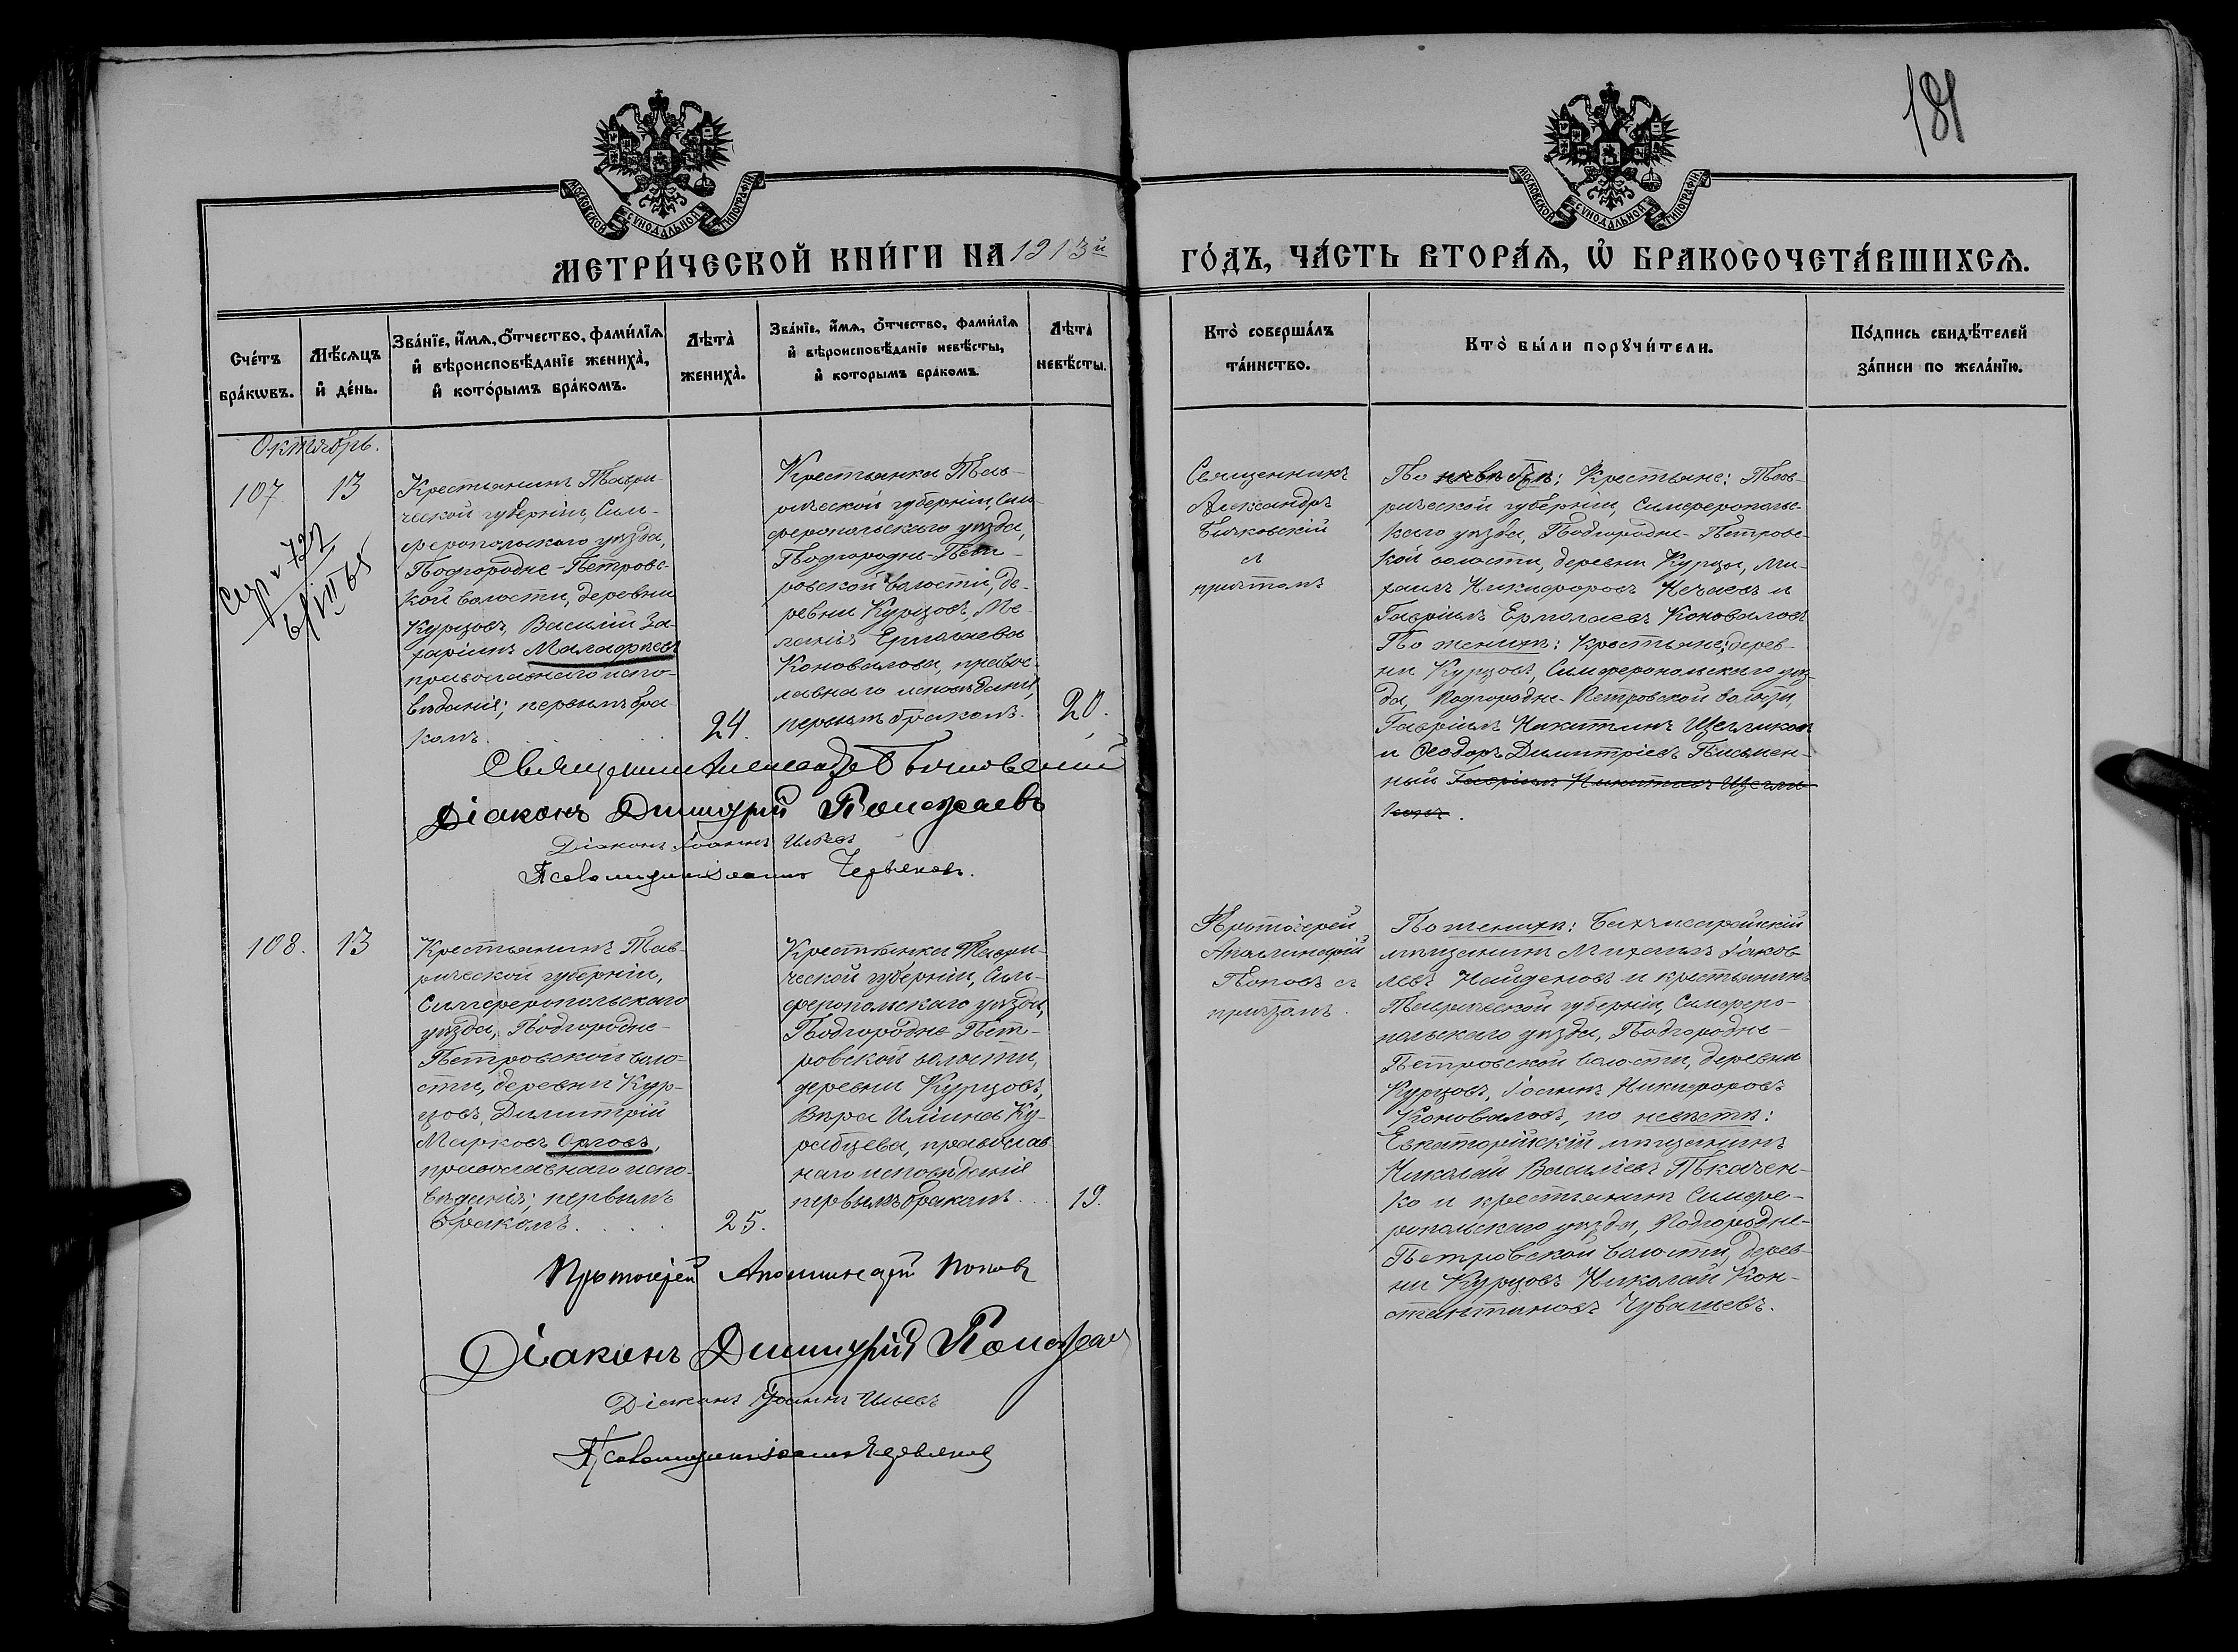 181
МОСКОВСКОЙ СѴНОДАЛЬНОЙ ТИПОГРАФІИ
МОСКОВСКОЙ СѴНОДАЛЬНОЙ ТИПОГРАФІИ
МЕТРИ́ЧЕСКОЙ КНИ́ГИ НА 1913й
ГО́ДЪ, ЧА́СТЬ ВТОРА́Ѧ, Ѡ҆ БРАКОСОЧЕТА́ВШИХСѦ.
Сче́тъ
бра́кѡвъ.
Мѣ́сѧцъ
и҆ де́нь.
Зва́нїе, и҆́мѧ, о҆́тчество, фами́лїѧ
и҆ вѣроисповѣ́данїе жениха̀,
и҆ кото́рымъ бра́комъ.
Лѣта̀
жениха̀.
Зва́нїе, и҆́мѧ, о҆́тчество, фами́лїѧ
и҆ вѣроисповѣ́данїе невѣ́сты,
и҆ которымъ бра́комъ.
Лѣта̀
невѣ́сты.
Кто̀ соверша́лъ
та́инство.
Кто̀ бы́ли порꙋчи́тели.
По́дпись свидѣ́телей
за́писи по жела́нїю.
Октябрь.
107.
13
Крестьянинъ Таври-
ческой губерніи, Сим-
феропольскаго уѣзда,
Подгородне-Петровс-
кой волости, деревни
Курцовъ, Василій За-
харіинъ Малафѣевъ
православнаго испо-
вѣданія; первымъ бра-
комъ
24.
Крестьянка Тав-
рической губерніи, Сим-
феропольскаго уѣзда,
Подгородне-Пет-
ровской волости, де-
ревни Курцовъ, Ме-
ланія Ермолаева
Коновалова, правос-
лавнаго исповѣданія,
первымъ бракомъ.
20.
Священникъ
Александръ
Бычковскій
съ
причтомъ
По невѣстѣ: Крестьяне: Тав-
рической губерніи, Симферопольс-
каго уѣзда, Подгородне-Петровс-
кой волости, деревни Курцы, Ми-
хаилъ Никифоровъ Нечаевъ и
Гавріилъ Ермолаевъ Коноваловъ
По женихѣ: Крестьяне; дерев-
ни Курцовъ, Симферопольскаго уѣз-
да, Подгородне-Петровской волости,
Гавріилъ Никитинъ Щегликовъ
и Ѳеодоръ Димитріевъ Письмен-
ный Гавріилъ Никитинъ Щегли-
ковъ.
Священникъ Александръ Бычковскій
Діаконъ Димитрій Полежаевъ
Діаконъ Іоаннъ Ильевъ
Псаломщикъ Іоаннъ Червяковъ.
108.
13
Крестьянинъ Тав-
рической губерніи,
Симферопольскаго
уѣзда, Подгородне-
Петровской воло-
сти, деревни Кур-
цовъ, Димитрій
Марковъ Орловъ,
православнаго испо-
вѣданія; первымъ
бракомъ.
25.
Крестьянка Таври-
ческой губерніи, Сим-
феропольскаго уѣзда,
Подгородне Пет-
ровской волости,
деревни Курцовъ,
Вѣра Ильина Ку-
рабцева, православ
наго исповѣданія
первымъ бракомъ.
19.
Протоіерей
Аполлинарій
Поповъ съ
причтомъ.
По женихѣ: Бахчисарайскій
мѣщанинъ Михаилъ Іаков
левъ Найденовъ и крестьянинъ
Таврической губерніи, Симферо-
польскаго уѣзда, Подгородне-
Петровской волости, деревни
Курцовъ, Іоаннъ Никифоровъ
Коноваловъ, по невѣстѣ:
Евпаторійскій мѣщанинъ
Николай Василіевъ Ткачен-
ко и крестьянинъ Симфе-
ропольскаго уѣзда, Подгородне-
Петровской волости, дерев-
ни Курцовъ Николай Кон-
стантиновъ Чувашевъ.
Протоіерей Аполлинарій Поповъ
Діаконъ Димитрій Полежаев
Діаконъ Іоаннъ Ильевъ
Псаломщикъ Іоаннъ Червяковъ